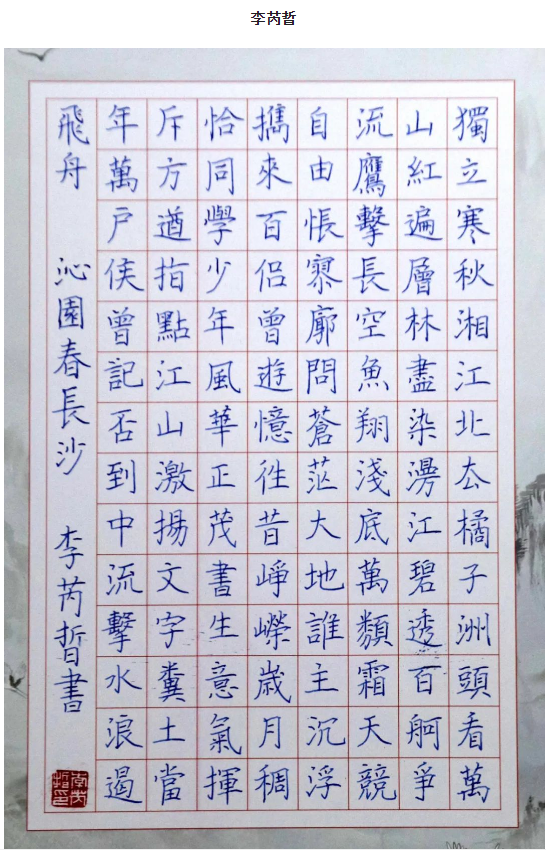 李芮晢
獨立寒秋湘江北厺橘子洲頭看萬
山紅遍層林盡染漫江碧透百舸爭
流鷹擊長空魚翔淺底萬類霜天競
自由悵寥廓問蒼茫大地誰主沉浮
攜來百侶曾遊憶往昔崢嶸歲月稠
恰同學少年風華正茂書生意氣揮
斥方遒指點江山激揚文字糞土當
年萬戶侯曾記否到中流擊水浪遏
飛舟 沁園春長沙 李芮晢書
李芮晢印